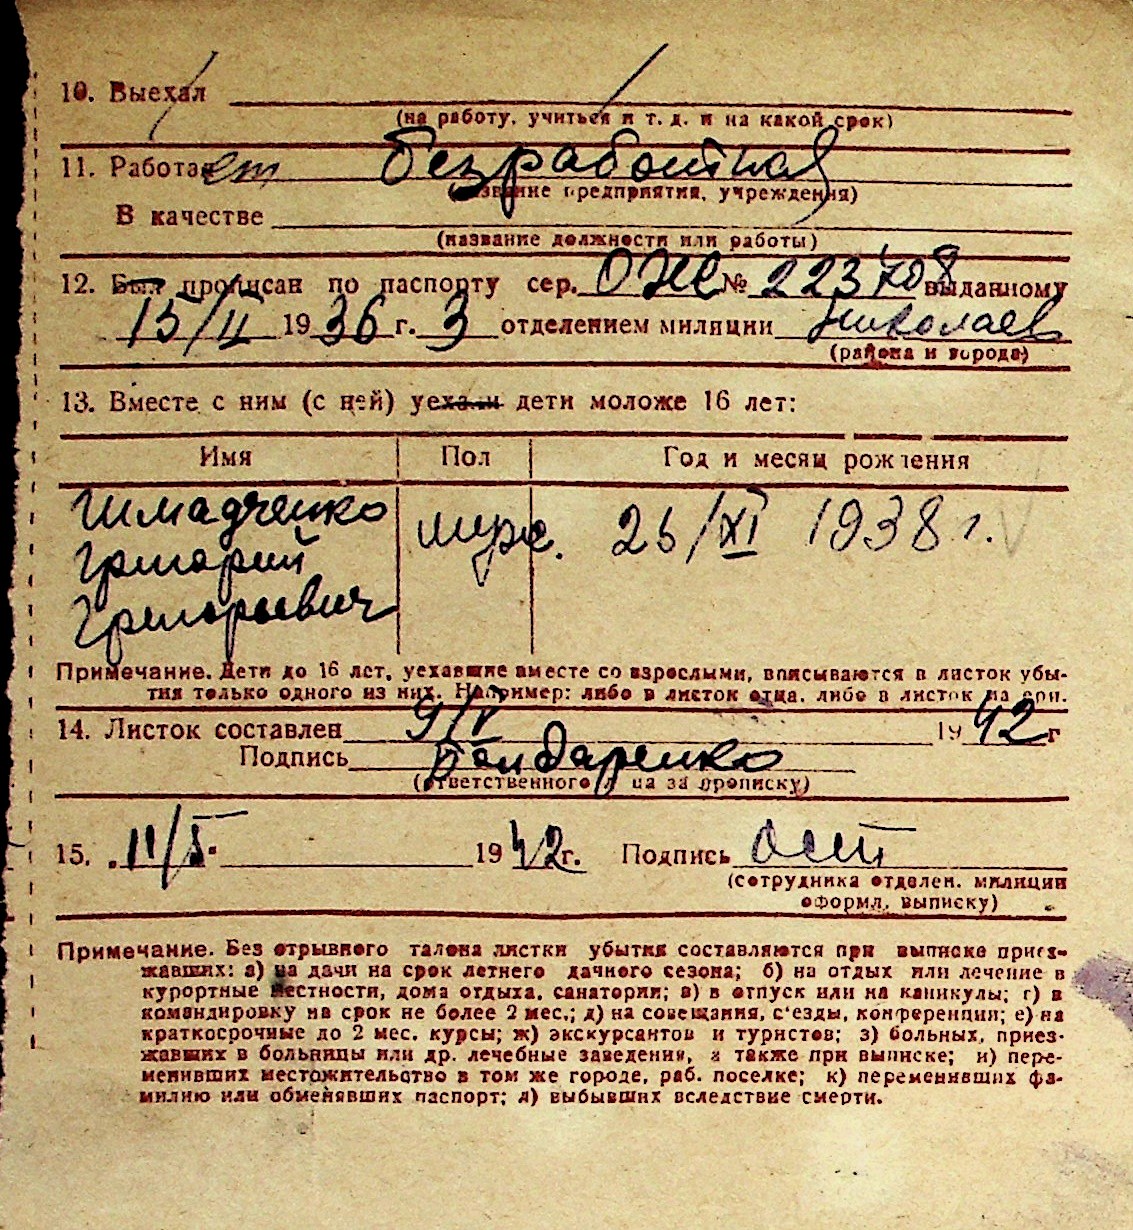 10. Выехал
(на работу, учиться и т. д. и на какой срок)
11. Работает безработная
(название предприятия, учреждения)
В качестве
(название должности или работы)
12. Был прописан по паспорту сер. ОЖ № 223708 выданному
15/II 1936 г. 3 отделением милиции Николаев
(района и города)
13. Вместе с ним (с ней) уехали дети моложе 16 лет:
Имя Пол Год и месяц рождения
Шмадченко муж. 26/XI 1938 г.
Григорий
Григорьевич
Примечание. Дети до 16 лет, уехавшие вместе со взрослыми, вписываются в листок убы-
тия только одного из них. Например: либо в листок отца, либо в листок
14. Листок составлен 9/V 1942 г
Подпись Бондаренко
(ответственного лица за прописку)
15. 11/V. 1942 г. Подпись
(сотрудника отделен. милиции
оформл. выписку)
Примечание. Без отрывного талона листки убытия составляются при выписке приез-
жавших: а) на дачи на срок летнего дачного сезона; б) на отдых или лечение в
курортные местности, дома отдыха, санатории; в) в отпуск или на каникулы; г) в
командировку на срок не более 2 мес.; д) на совещания, с'езды, конференции; е) на
краткосрочные до 2 мес. курсы; ж) экскурсантов и туристов; з) больных, приез-
жавших в больницы или др. лечебные заведения, а также при выписке; и) пере-
менивших местожительство в том же городе, раб. поселке; к) переменивших фа-
милию или обменявших паспорт; л) выбывших вследствие смерти.